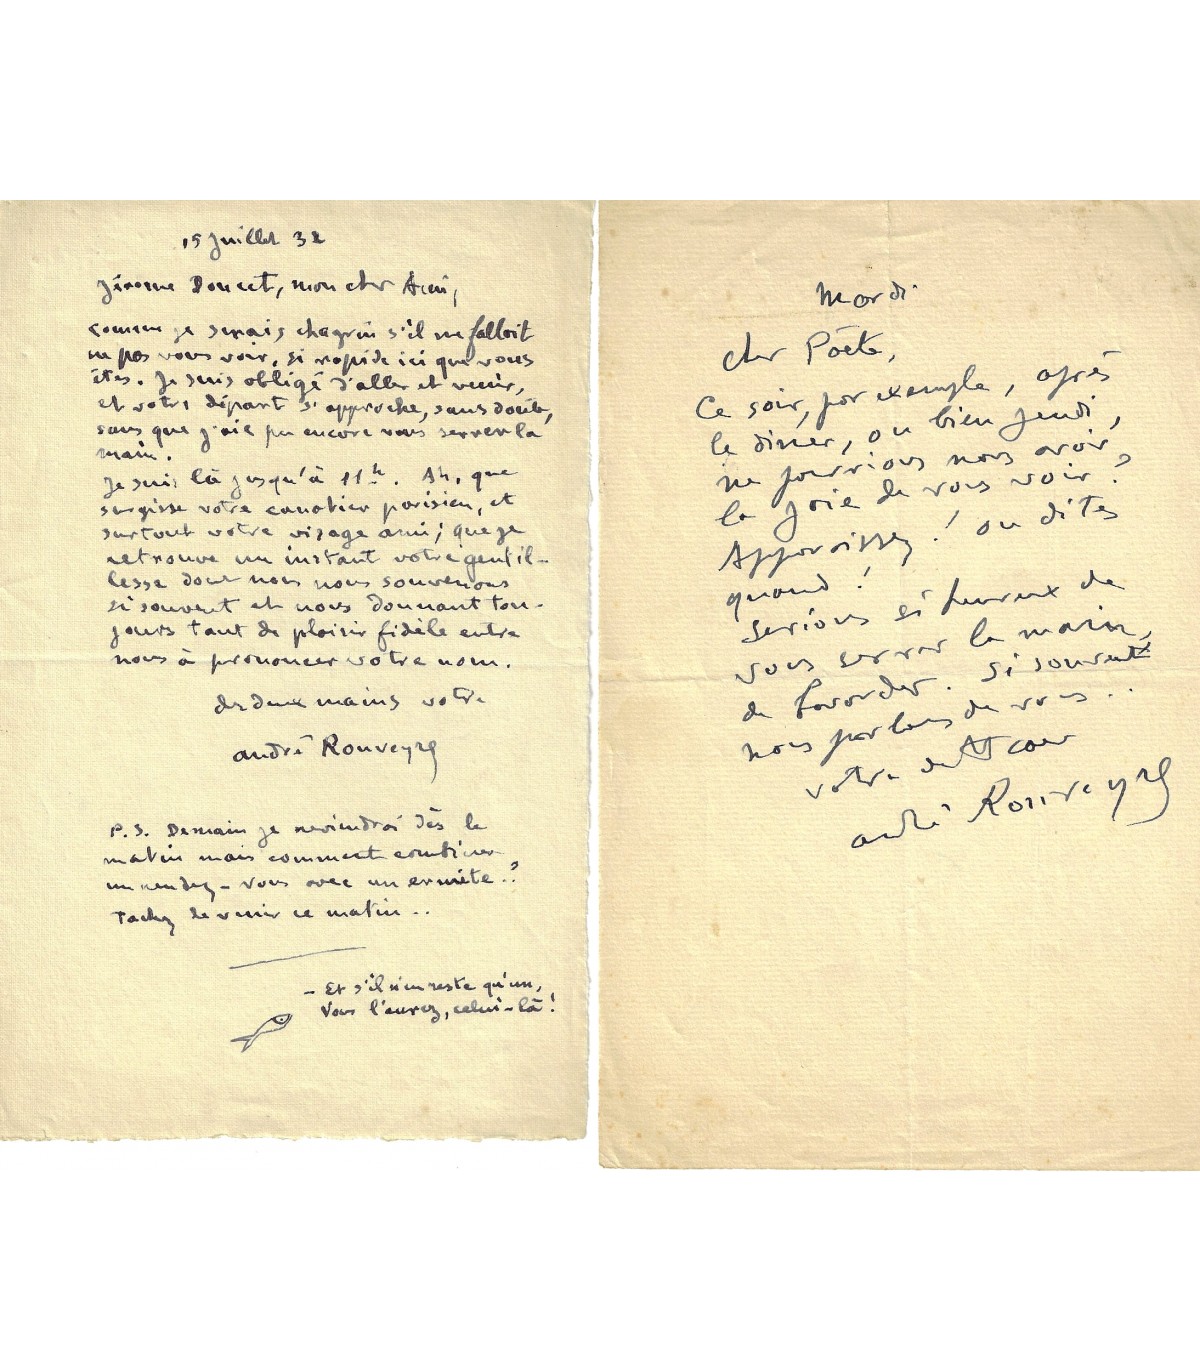 15 Juillet 32
Jérome Doucet, mon cher Ami,
comme je serais chagrin s'il me falloit
ne pas vous voir, si rapide ici que vous
êtes. Je suis obligé d'aller et venir,
et votre départ s'approche, sans doute,
sans que j'aie pu encore vous serrer la
main.
Je suis là jusqu'à 11h. Ah, que
surgisse votre canotier parisien, et
surtout votre visage ami; que je
retrouve un instant votre gentil-
lesse dont nous nous souvenons
si souvent et nous donnant tou-
jours tant de plaisir fidèle entre
nous à prononcer votre nom.
des deux mains votre
André Rouveyre
P.S. Demain je reviendrai dès le
matin mais comment combiner
un rendez-vous avec un ermite..?
Tachez de venir ce matin..
- Et s'il n'en reste qu'un,
Vous l'aurez, celui-là!
Mardi
Cher Poète,
Ce soir, par exemple, après
le diner, ou bien Jeudi,
ne pourrions nous avoir
la joie de vous voir?
Apparaissez! ou dites
quand!
serions si heureux de
vous serrer la main,
de bavarder. Si souvent
nous parlons de vous..
votre de coeur
André Rouveyre